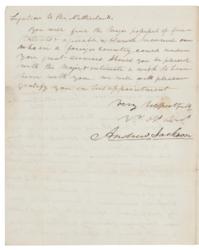 Legation to the Netherlands.
You will find the Major possessed of fine
talents & amiable
whom in a foreign country could render
you great services Should you be pleased
with the Major & intimate a wish to have
him with you we will with pleasure
gratify you in his appointment
very respectfully
Andrew Jackson